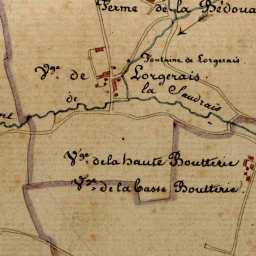 Ferme de la Bédoua
Fontaine de Lorgerais
Vge. de Lorgerais
de la Saudrais
Vge. de la haute Boutterie
Vge. de la basse Boutterie